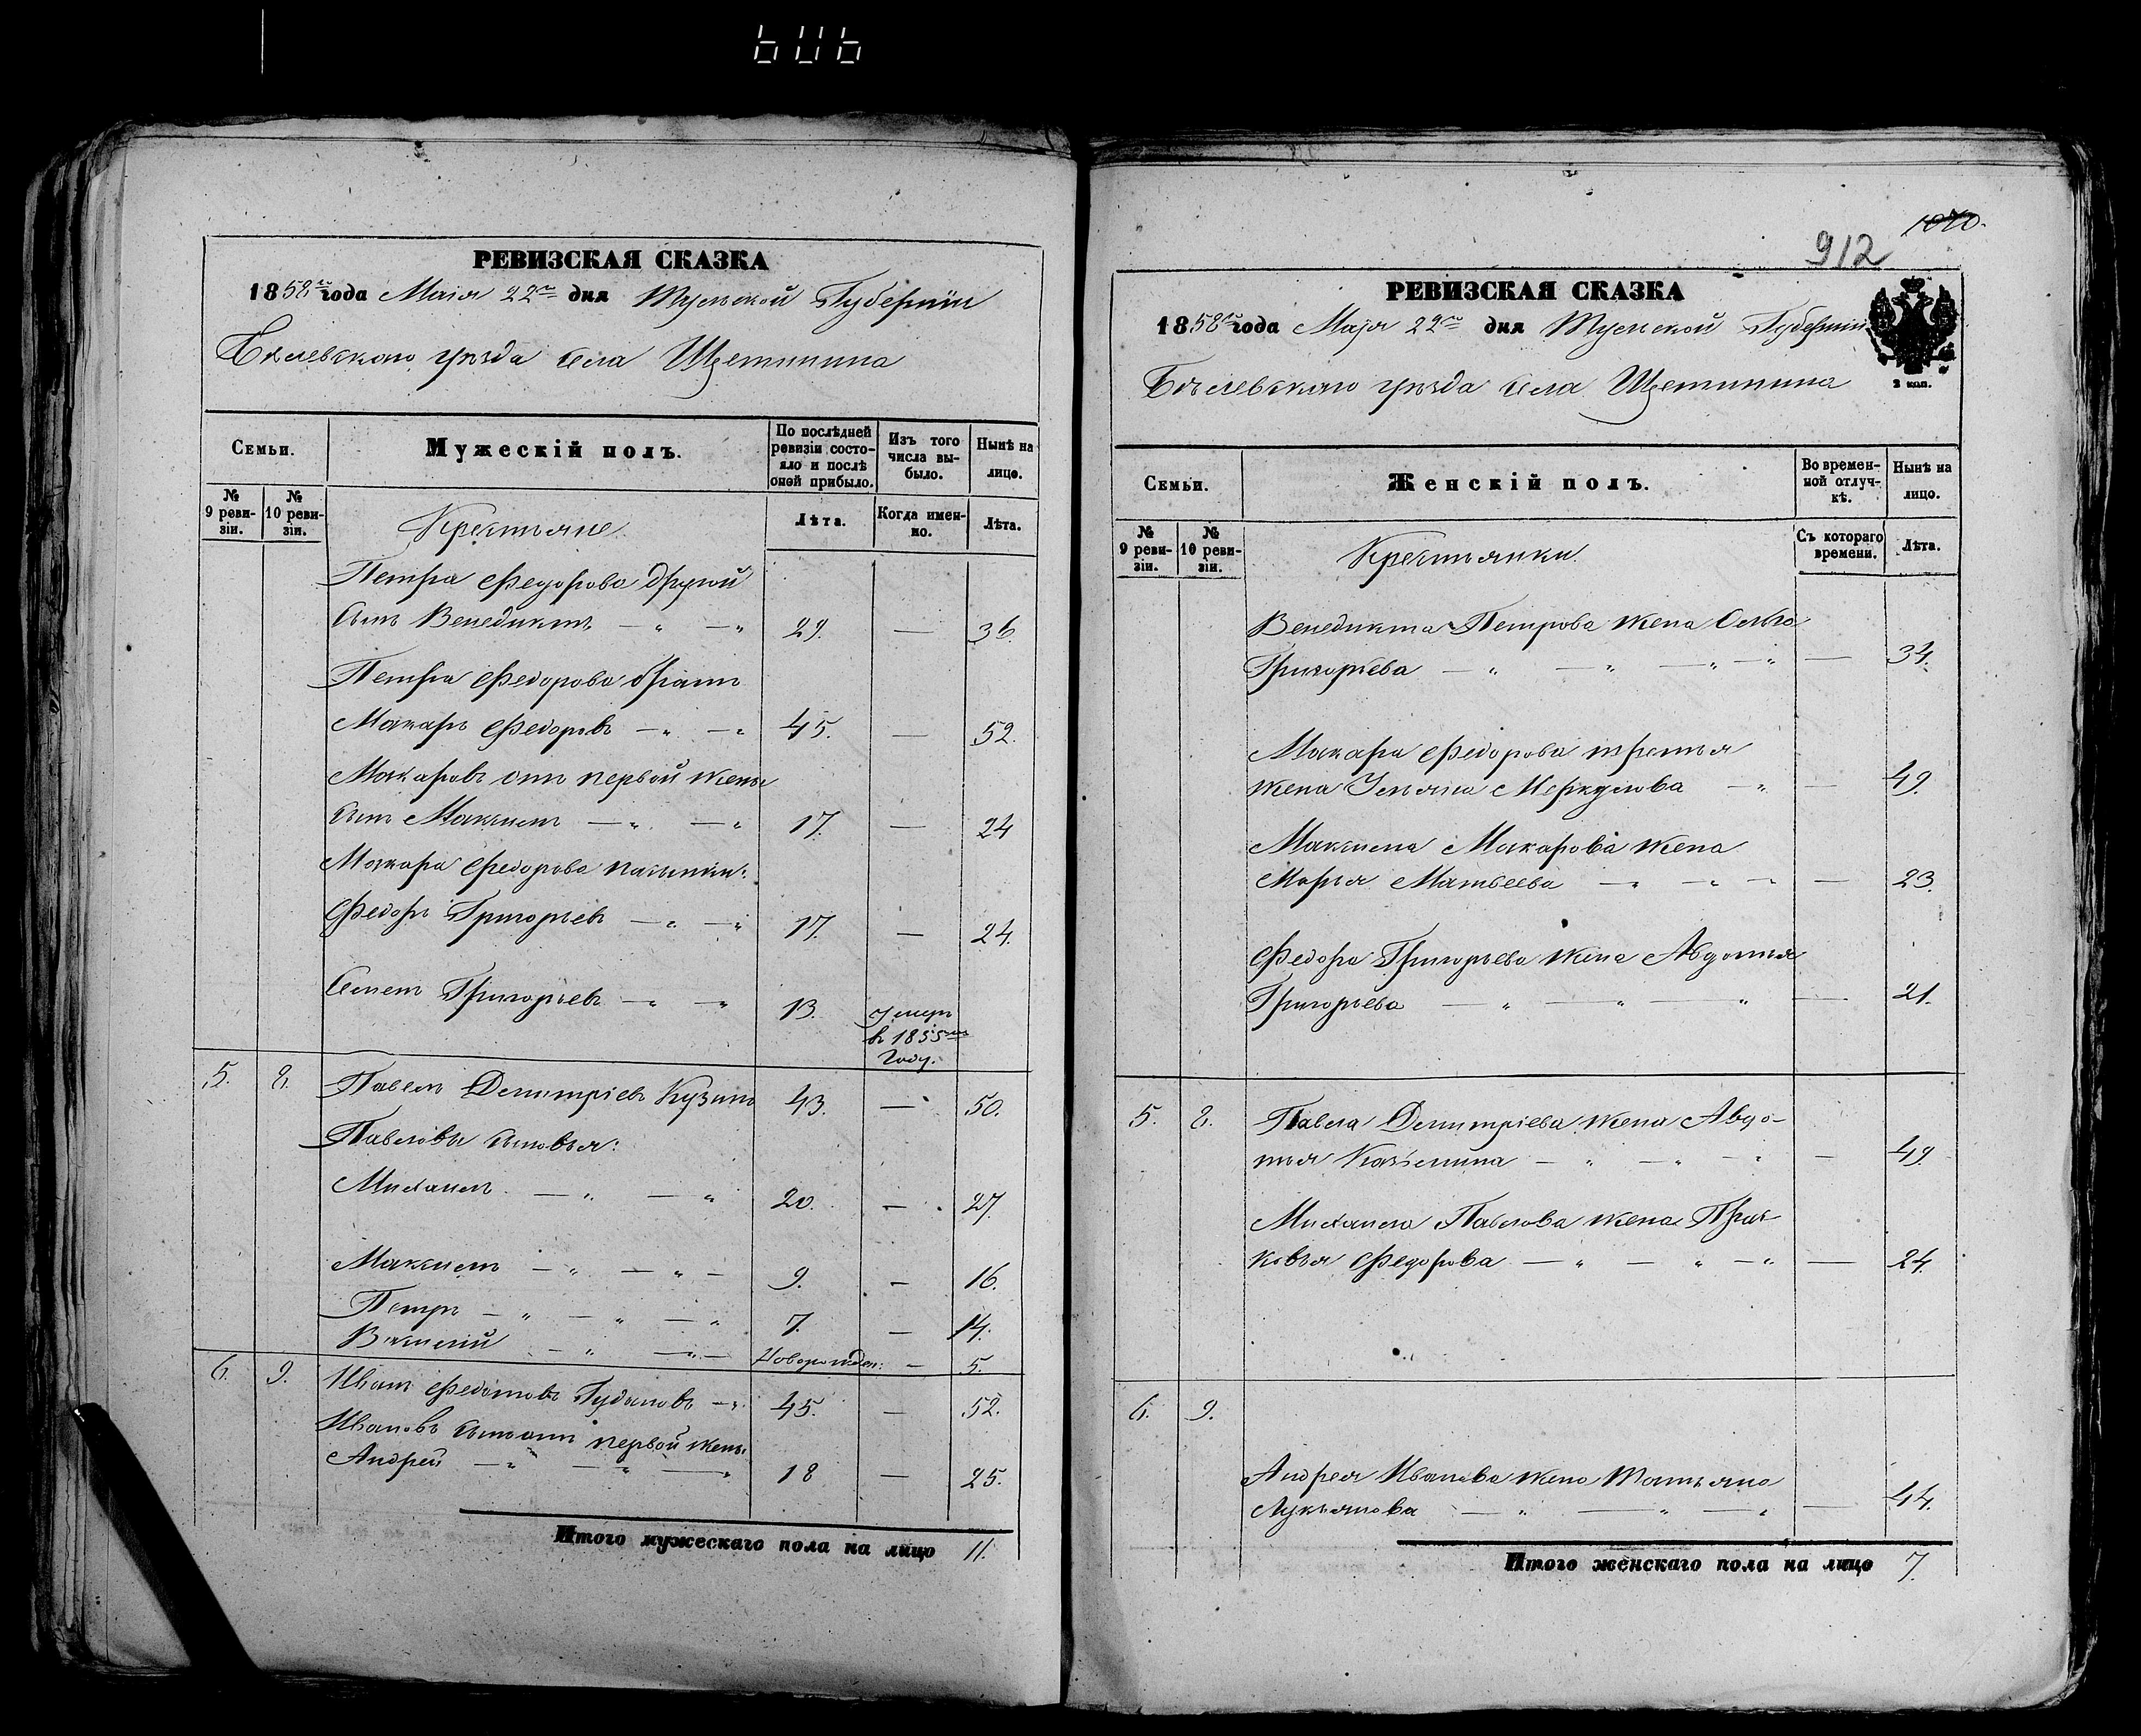 РЕВИЗСКАЯ СКАЗКА
1858го года Маія 22го дня Тульской Губерніи
Бѣлевскаго уѣзда села Щетинина
Семьи.
Мужескій полъ.
По послѣдней ревизіи состояло и послѣ оней прибыло.
Изъ того числа выбыло.
Нынѣ на лице.
№ 9 ревизіи.
№ 10 ревизіи.
Крестьяне
Лѣта.
Когда именно.
Лѣта.
Петра Федорова другой
сынъ Венедиктъ — „ — „ 29. — 36.
Петра Федорова братъ
Макаръ Федоровъ — „ — „ 45. — 52.
Макаровъ отъ первой жены
сынъ Максимъ — „ — „ 17. — 24
Макара Федорова пасынки:
Федоръ Григорьевъ — „ — „ 17. — 24.
Семенъ Григорьевъ — „ — „ 13. Умеръ
въ 1855мъ
Году.
5. 8. Павелъ Дмитріевъ Кузинъ 43. — 50.
Павловы сыновья:
Михаилъ — „ — „ 20. — 27.
Максимъ — „ — „ — 9. — 16.
Петръ — „ — „ — „ 7. — 14.
— „ — „ — Новорожден: — 5.
6. 9. Иванъ Федотовъ — „ 45. — 52.
Ивановъ сынъ отъ первой жены
Андрей — „ — „ — „ 18 — 25.
Итого мужескаго пола на лицо 11.
1070.
912
РЕВИЗСКАЯ СКАЗКА
1858го года Маія 22го дня Тульской Губерніи
2 коп.
Бѣлевскаго уѣзда села Щетинина
Семьи.
Женскій полъ.
Во временной отлучкѣ.
Нынѣ на лицо.
№ 9 ревизіи.
№ 10 ревизіи.
Крестьянки.
Съ котораго времени.
Лѣта.
Венедикта Петрова жена Ольга
Григорьева — „ — „ — „ — „ — 34.
Макара Федорова третья
жена Ульяна Меркулова — „ — 49.
Максима Макарова жена
Марья Матвеева — „ — „ — „ — 23.
Федора Григорьева жена Авдотья
Григорьева — „ — „ — „ — 21.
5. 8. Павла Дмитріева жена Авдо-
тья — „ — „ — „ — 49.
Михаила Павлова жена Прас-
ковья Федорова — „ — „ — „ — 24.
6. 9.
Андрея Иванова жена Татьяна
Лукьянова — „ — „ — „ — 44.
Итого женскаго пола на лицо 7.